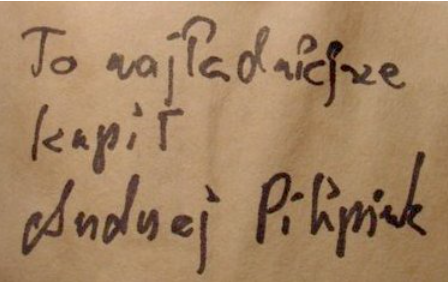 To najładniejsze
kupił
Andrzej Pilipiuk